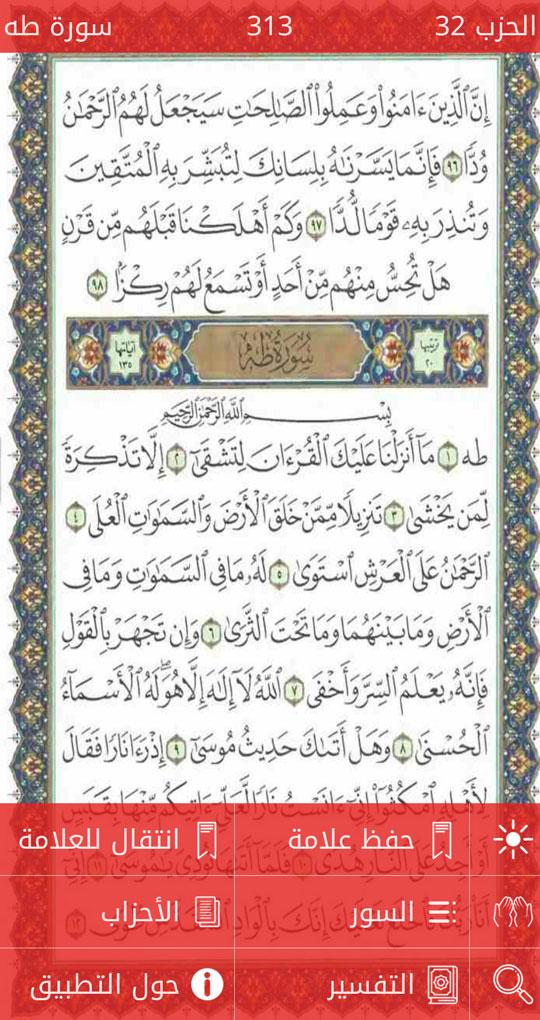 الحزب 32 313 سورة طه
إِنَّ ٱلَّذِينَ ءَامَنُوا۟ وَعَمِلُوا۟ ٱلصَّـٰلِحَـٰتِ سَيَجْعَلُ لَهُمُ ٱلرَّحْمَـٰنُ
وُدًّا ٩٦ فَإِنَّمَا يَسَّرْنَـٰهُ بِلِسَانِكَ لِتُبَشِّرَ بِهِ ٱلْمُتَّقِينَ
وَتُنذِرَ بِهِۦ قَوْمًا لُّدًّا ٩٧ وَكَمْ أَهْلَكْنَا قَبْلَهُم مِّن قَرْنٍ
هَلْ تُحِسُّ مِنْهُم مِّنْ أَحَدٍ أَوْ تَسْمَعُ لَهُمْ رِكْزًۢا ٩٨
ترتيبها ٢٠ سُورَةُ طه آياتها ١٣٥
بِسْمِ ٱللَّهِ ٱلرَّحْمَـٰنِ ٱلرَّحِيمِ
طه ١ مَآ أَنزَلْنَا عَلَيْكَ ٱلْقُرْءَانَ لِتَشْقَىٰٓ ٢ إِلَّا تَذْكِرَةً
لِّمَن يَخْشَىٰ ٣ تَنزِيلًا مِّمَّنْ خَلَقَ ٱلْأَرْضَ وَٱلسَّمَـٰوَٰتِ ٱلْعُلَى ٤
ٱلرَّحْمَـٰنُ عَلَى ٱلْعَرْشِ ٱسْتَوَىٰ ٥ لَهُۥ مَا فِى ٱلسَّمَـٰوَٰتِ وَمَا فِى
ٱلْأَرْضِ وَمَا بَيْنَهُمَا وَمَا تَحْتَ ٱلثَّرَىٰ ٦ وَإِن تَجْهَرْ بِٱلْقَوْلِ
فَإِنَّهُۥ يَعْلَمُ ٱلسِّرَّ وَأَخْفَى ٧ ٱللَّهُ لَآ إِلَـٰهَ إِلَّا هُوَ ۖ لَهُ ٱلْأَسْمَآءُ
ٱلْحُسْنَىٰ ٨ وَهَلْ أَتَىٰكَ حَدِيثُ مُوسَىٰٓ ٩ إِذْ رَءَا نَارًا فَقَالَ
لِأَهْلِهِ ٱمْكُثُوٓا۟ إِنِّىٓ ءَانَسْتُ نَارًا لَّعَلِّىٓ ءَاتِيكُم مِّنْهَا بِقَبَسٍ
حفظ علامة انتقال للعلامة
أَوْ أَجِدُ عَلَى ٱلنَّارِ هُدًى ١٠ فَلَمَّآ أَتَىٰهَا نُودِىَ يَـٰمُوسَىٰٓ ١١ إِنِّىٓ
السور الأحزاب
التفسير حول التطبيق